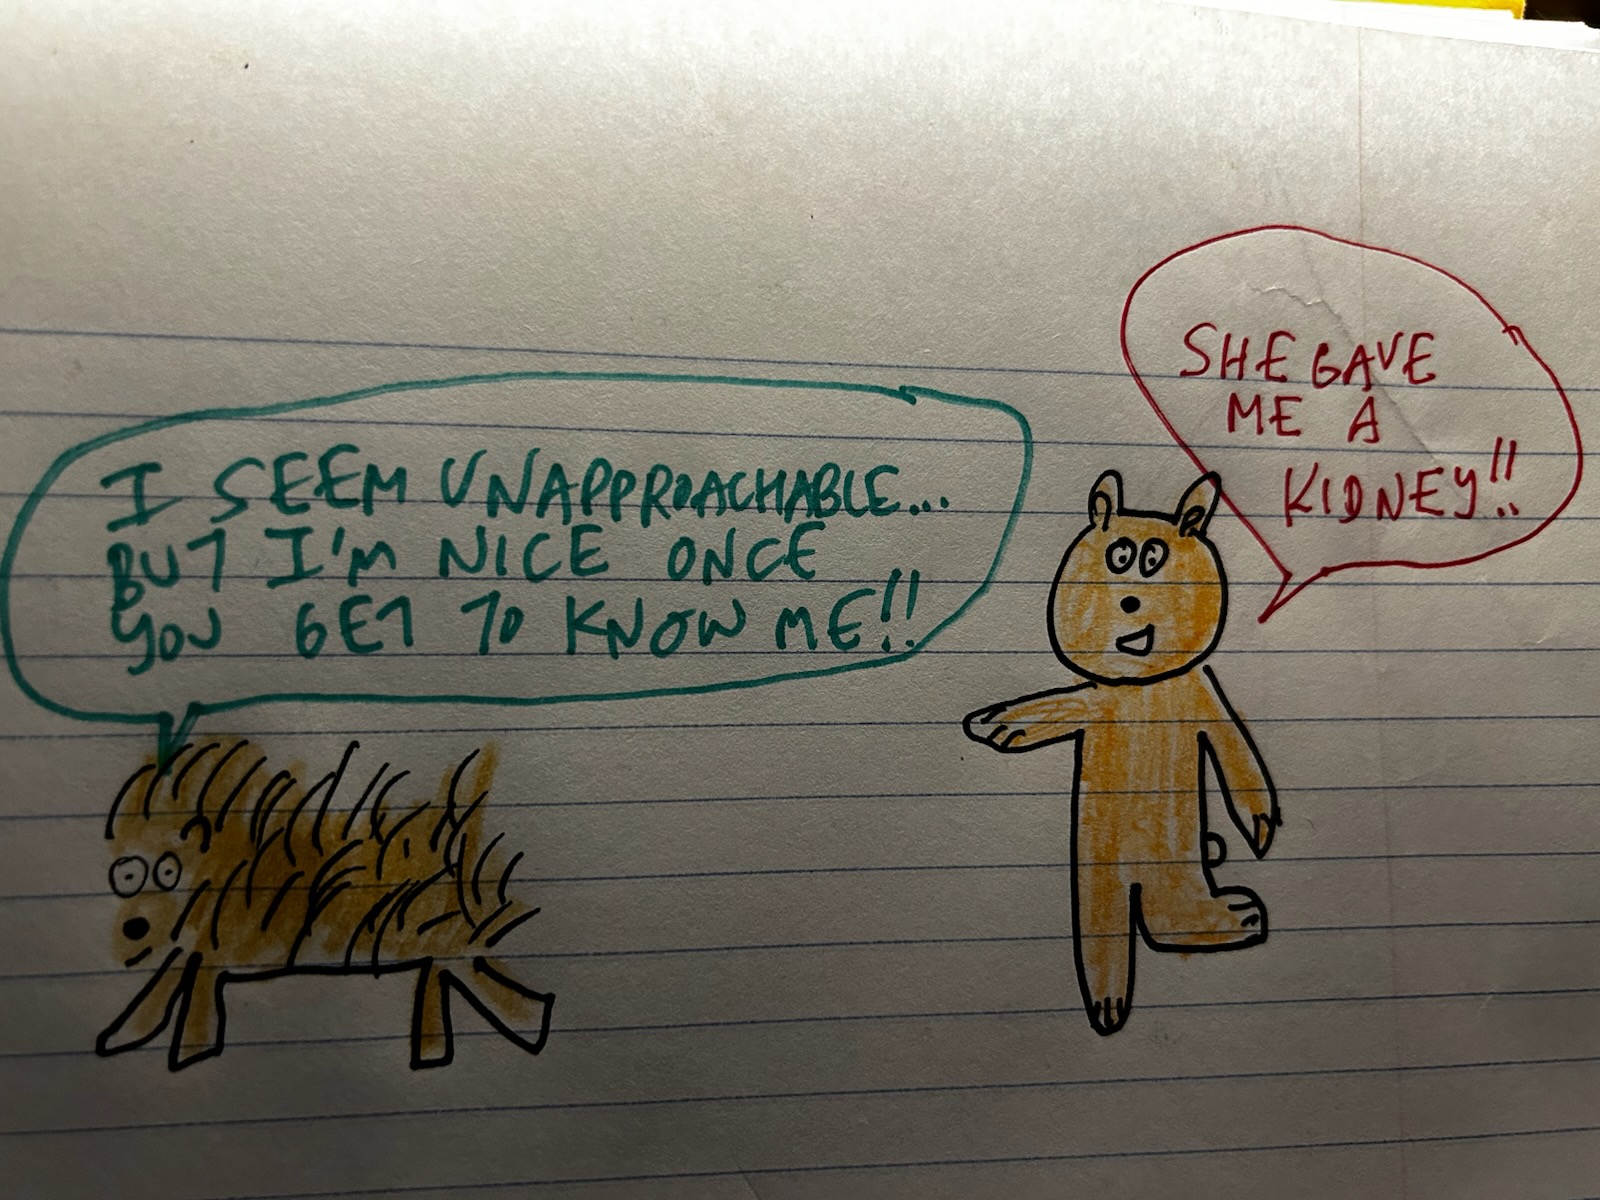 I SEEM UNAPPROACHABLE...
BUT I'M NICE ONCE
YOU GET TO KNOW ME!!
SHE GAVE
ME A
KIDNEY!!